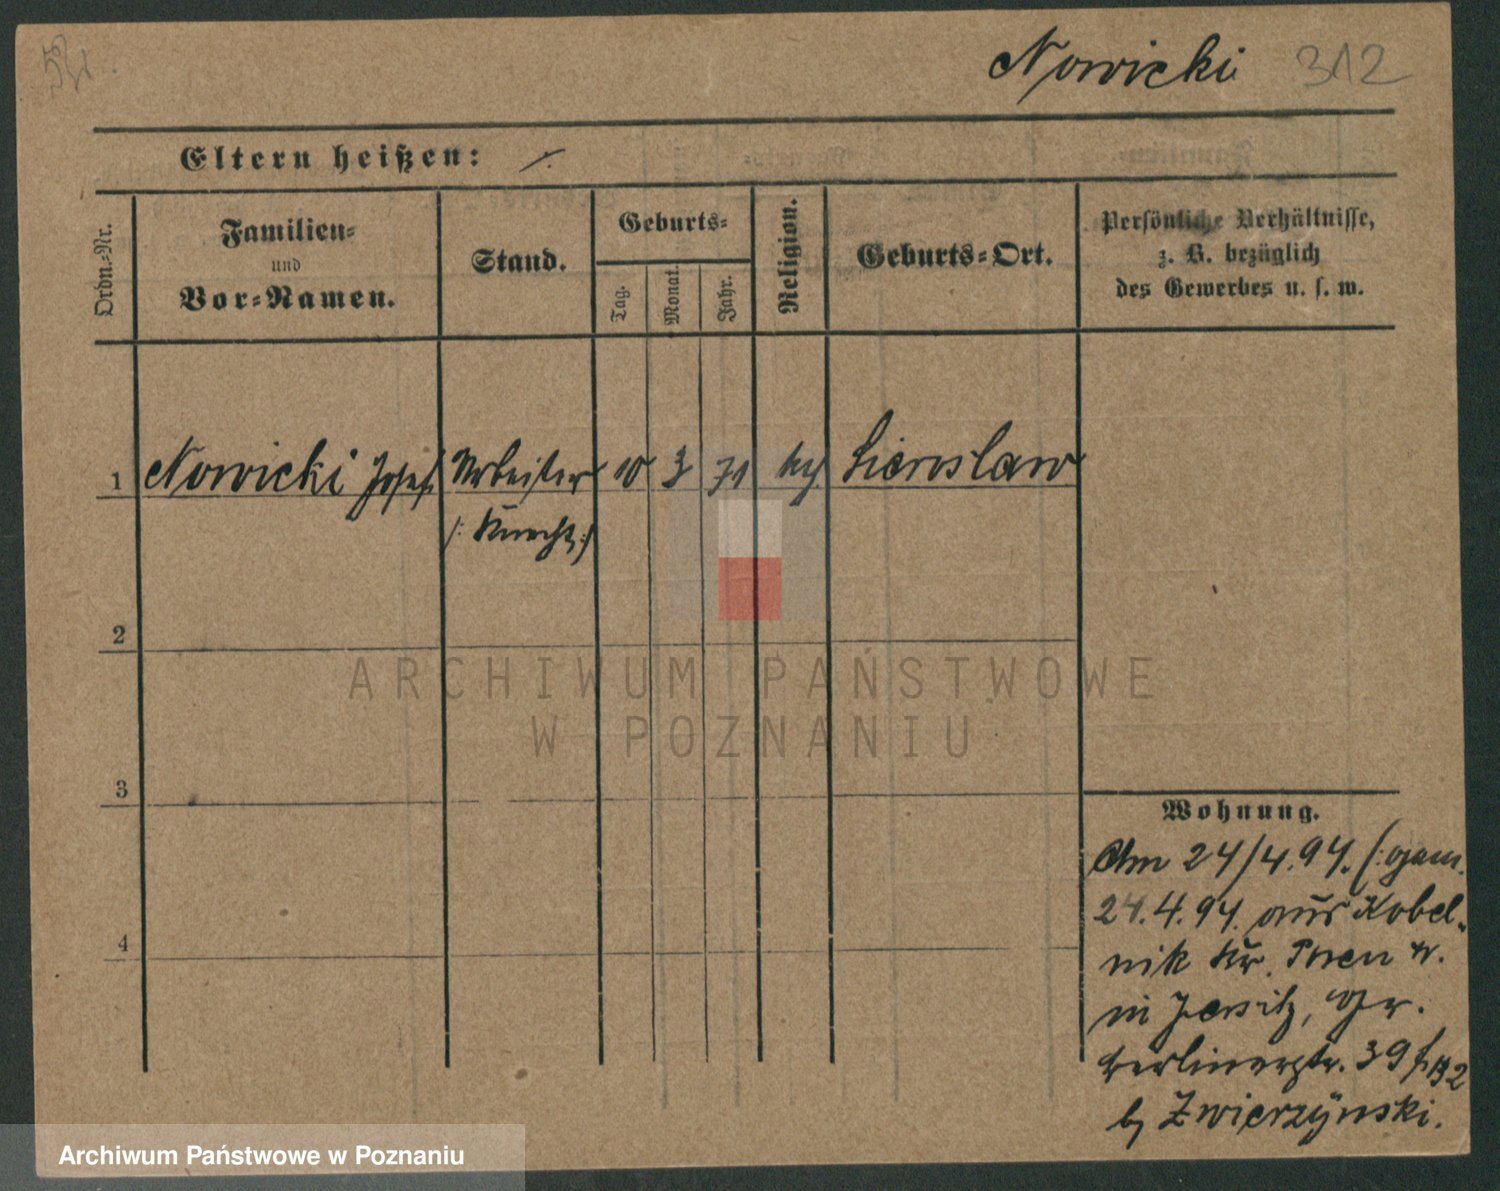 Nowicki 312
Eltern heißen: ./.
Ordn.-Nr.
Familien-
und
Vor-Namen.
Stand.
Geburts-
Tag.
Monat.
Jahr.
Religion.
Geburts-Ort.
Persönliche Verhältnisse,
z. B. bezüglich
des Gewerbes u. s. w.
1 Nowicki Josef Arbeiter 10 3 71
/: Knecht :/
2
ARCHIWUM PAŃSTWOWE
W POZNANIU
3
Wohnung.
Am 24/4.94. (: gem.
24.4.94. aus Kobel-
nik Kr.
4
in Jersitz, Gr.
Berlinerstr. 39
b/ Zwierzynski.
Archiwum Państwowe w Poznaniu